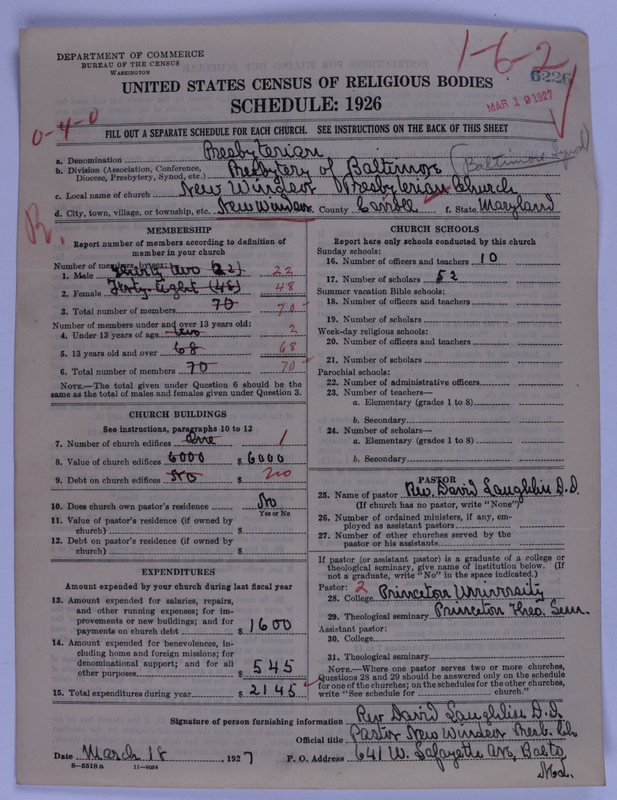 DEPARTMENT OF COMMERCE
BUREAU OF THE CENSUS
WASHINGTON
1-6-2
6226
MAR 19 1927
UNITED STATES CENSUS OF RELIGIOUS BODIES
SCHEDULE: 1926
0-4-0
FILL OUT A SEPARATE SCHEDULE FOR EACH CHURCH. SEE INSTRUCTIONS ON THE BACK OF THIS SHEET
a. Denomination Presbyterian
b. Division (Association, Conference, Diocese, Presbytery, Synod, etc.) Presbytery of Baltimore (Baltimore Synod)
c. Local name of church New Windsor Presbyterian Church
d. City, town, village, or township, etc. New Windsor County Carroll f. State Maryland
R.
MEMBERSHIP
Report number of members according to definition of
member in your church
Number of members by sex:
1. Male Thirty two (22) 22
2. Female Forty eight (48) 48
3. Total number of members 70 70
Number of members under and over 13 years old:
4. Under 13 years of age two 2
5. 13 years old and over 68 68
6. Total number of members 70 70
NOTE.—The total given under Question 6 should be the
same as the total of males and females given under Question 3.
CHURCH BUILDINGS
See instructions, paragraphs 10 to 12
7. Number of church edifices One 1
8. Value of church edifices 6000 $ 6000
9. Debt on church edifices No $ no
10. Does church own pastor's residence No
Yes or No
11. Value of pastor's residence (if owned by
church) $
12. Debt on pastor's residence (if owned by
church) $
EXPENDITURES
Amount expended by your church during last fiscal year
13. Amount expended for salaries, repairs,
and other running expenses; for im-
provements or new buildings; and for
payments on church debt $ 1600
14. Amount expended for benevolences, in-
cluding home and foreign missions; for
denominational support; and for all
other purposes $ 545
15. Total expenditures during year $ 2145
CHURCH SCHOOLS
Report here only schools conducted by this church
Sunday schools:
16. Number of officers and teachers 10
17. Number of scholars 52
Summer vacation Bible schools:
18. Number of officers and teachers
19. Number of scholars
Week-day religious schools:
20. Number of officers and teachers
21. Number of scholars
Parochial schools:
22. Number of administrative officers
23. Number of teachers—
a. Elementary (grades 1 to 8)
b. Secondary
24. Number of scholars—
a. Elementary (grades 1 to 8)
b. Secondary
PASTOR
25. Name of pastor Rev. David Laughlin D.D.
(If church has no pastor, write "None")
26. Number of ordained ministers, if any, em-
ployed as assistant pastors
27. Number of other churches served by the
pastor or his assistants
If pastor (or assistant pastor) is a graduate of a college or
theological seminary, give name of institution below. (If
not a graduate, write "No" in the space indicated.)
Pastor: 2
28. College Princeton University
29. Theological seminary Princeton Theo. Sem.
Assistant pastor:
30. College
31. Theological seminary
NOTE.—Where one pastor serves two or more churches,
Questions 28 and 29 should be answered only on the schedule
for one of the churches; on the schedules for the other churches,
write "See schedule for church."
Signature of person furnishing information Rev David Laughlin D.D.
Official title Pastor New Windsor Presb. Ch
Date March 18 1927 P. O. Address 641 W. Lafayette Av, Balto
Md.
8-5518a 11-9034